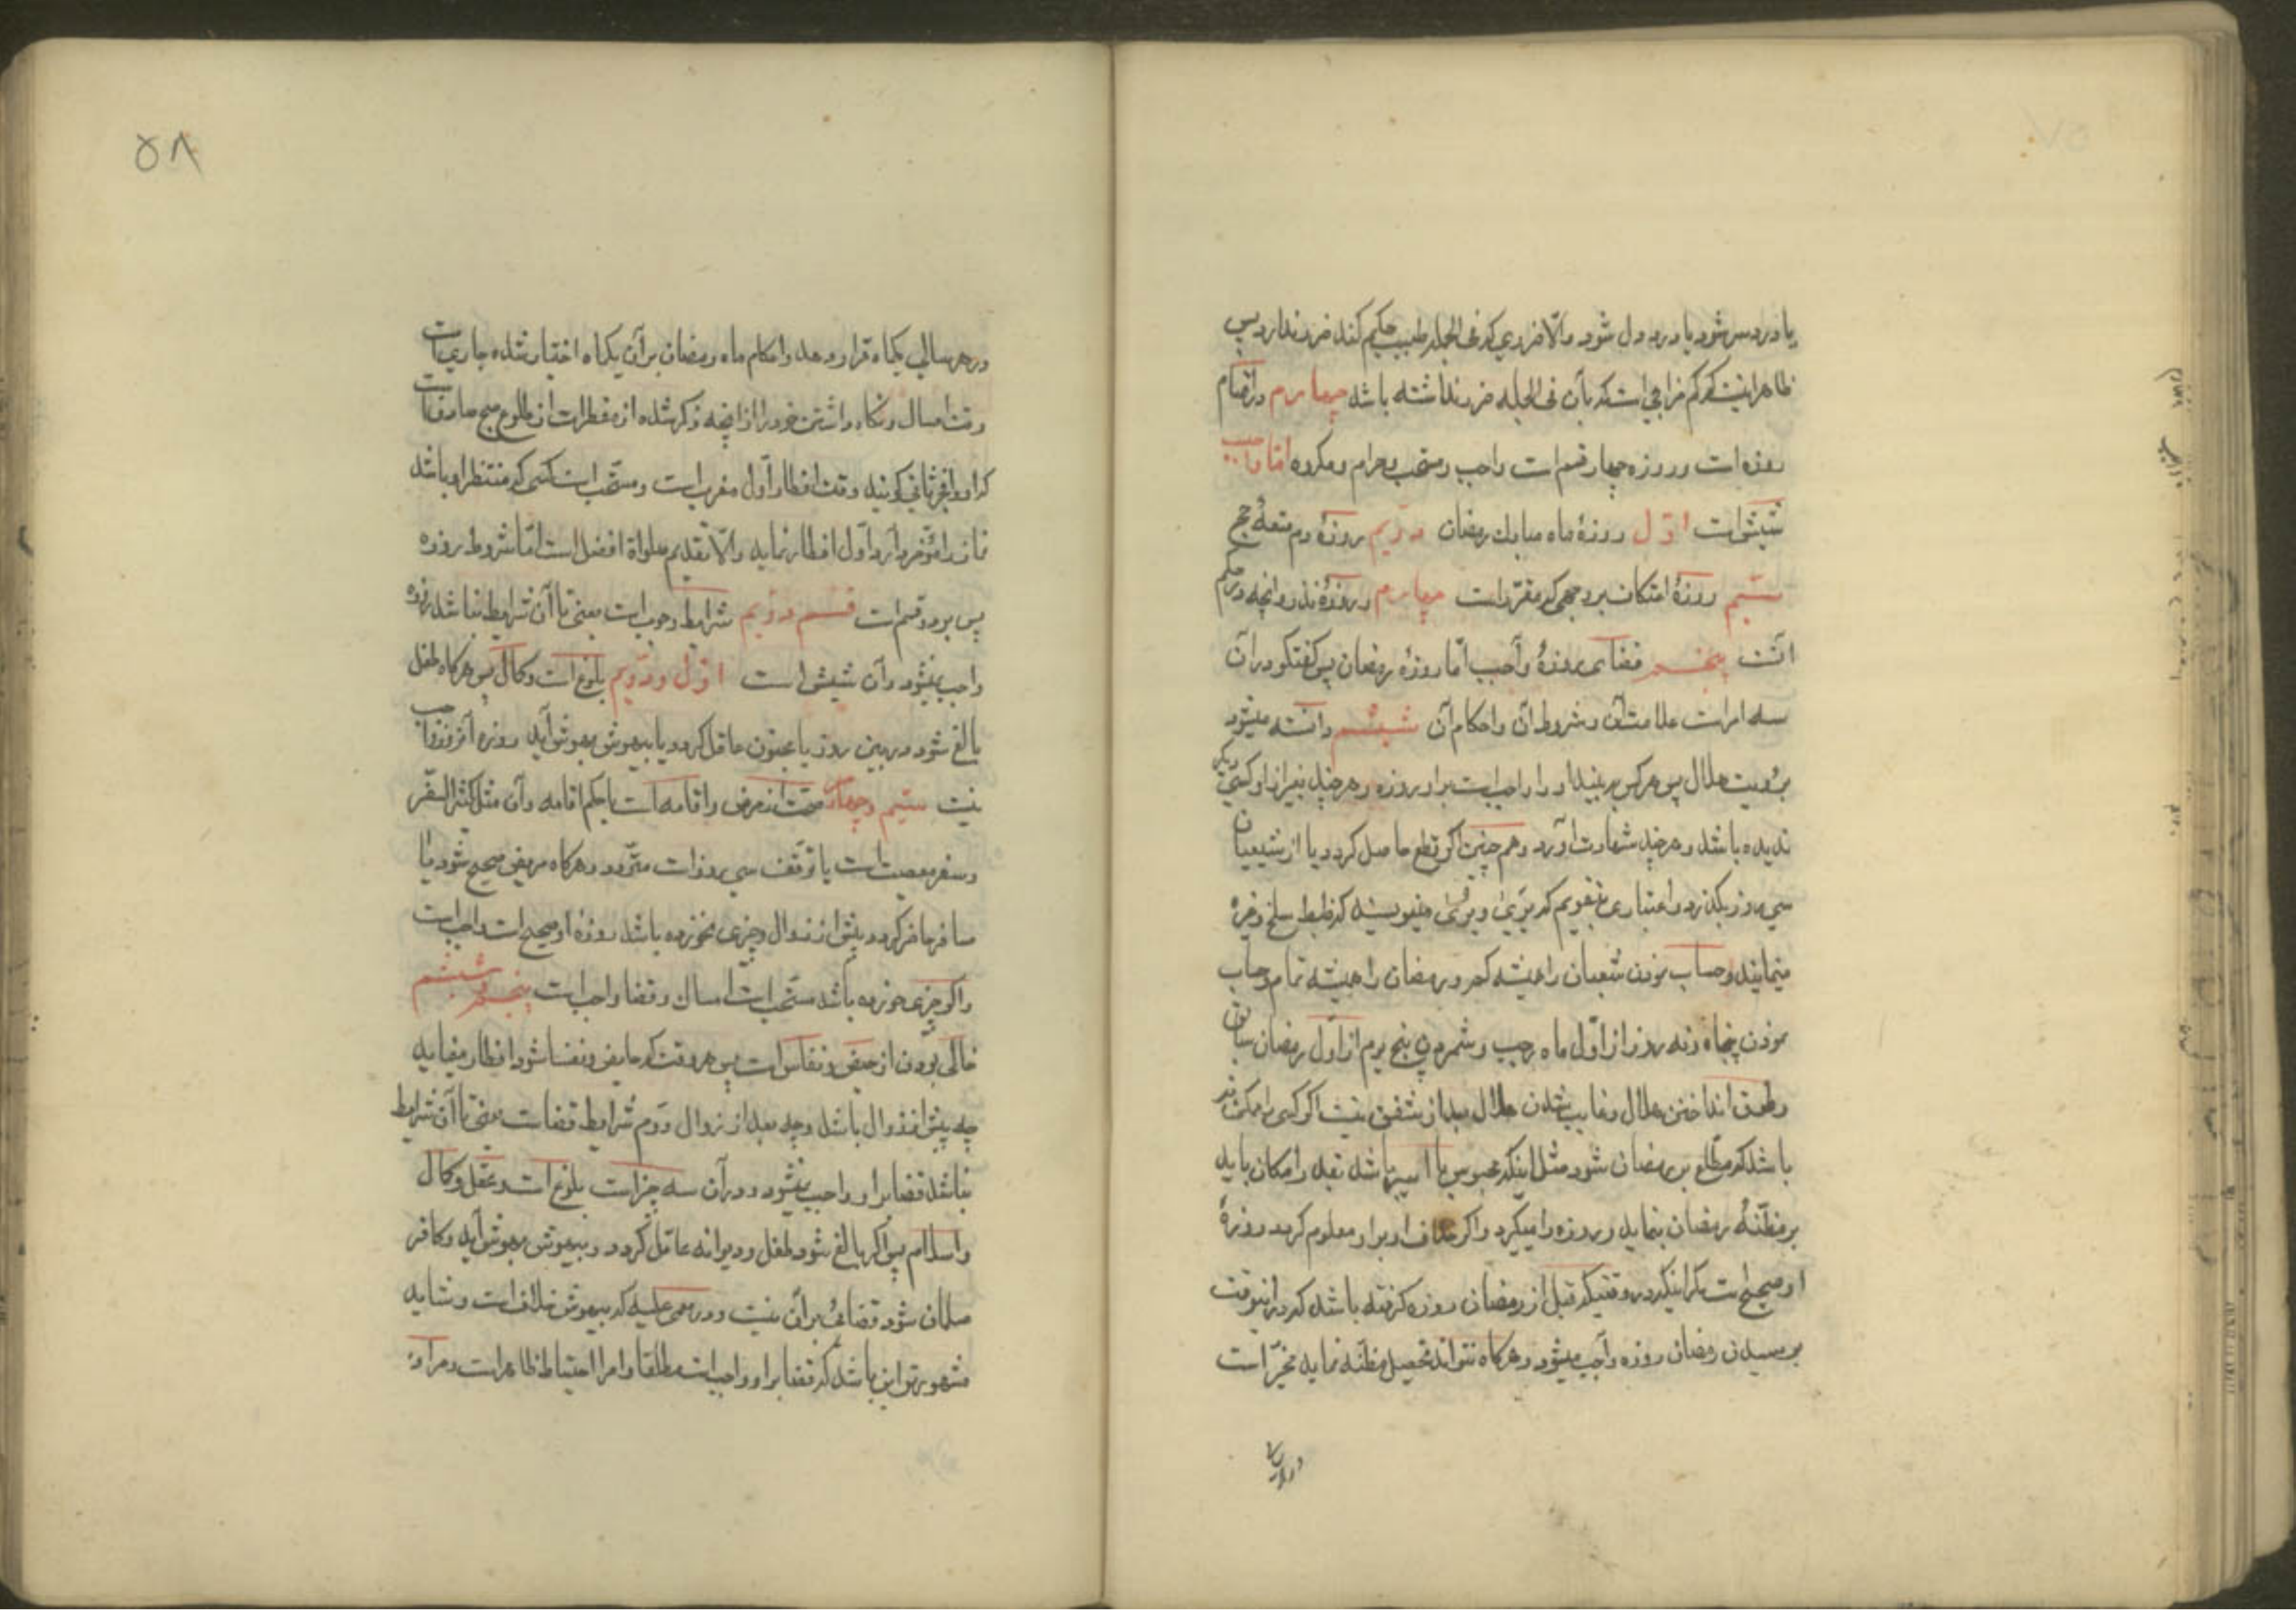 یا درد سر شود یا درد دل شود والّا ضرری که فی الجمله طبیب حکیم کند ضرر ندارد پس
ظاهر اینست که کم مزاجی است که بآن فی الجمله ضرر نداشته باشد چهارم در اقسام
روزه است و روزه چهار قسم است واجب و مستحب و حرام و مکروه اما واجب
شیش است اوّل روزهٔ ماه مبارك رمضان دویم روزهٔ دم متعهٔ حج
سیّم روزهٔ اعتکاف بر وجهی که مقرّر است چهارم روزهٔ نذر و آنچه در حکم
آنست پنجم قضای روزهٔ واجب امّا روزهٔ رمضان پس گفتگو در آن
سه امر است علامت آن و شروط آن و احکام آن ششم دانسته میشود
برؤیت هلال پس هر کس به بیند او را واجب است بر او روزه و هر چند بغیر از او کسی دیگر
ندیده باشد و هر چند شهادت آورد و هم چنین اگر قطع حاصل گردد یا از شعبان
سی روز بگذرد و اعتباری بتقویم که مینویسند که ضبط سلخ و غره
مینمایند و حساب نمودن شعبان را همیشه کمر و رمضان را همیشه تمام و حساب
نمودن پنجاه و نه روز از اوّل ماه رجب و شمردن پنج یوم از اوّل رمضان سابق
و طوق انداختن هلال و غایب شدن هلال بعد از شفق نیست اگر کسی را ممکن نه
باشد که مطّلع بر رمضان شود مثل اینکه محبوس یا اسیر باشد بقدر امکان باید
بر مظنّهٔ رمضان بنماید و روزه را میگیرد و اگر خلاف او بر او معلوم گردد روزهٔ
او صحیح است مگر اینکه در وقتیکه قبل از رمضان روزه گرفته باشد که در اینوقت
برسیدن رمضان روزه واجب میشود و هر گاه نتواند تحصیل مظنّه نماید مخیّر است
در هر سال
۵۸
در هر سالی یکماه قرار دهد و احکام ماه رمضان بر آن یکماه اختیار شده جاری است
وقت امساك و نگاه داشتن خود را از آنچه ذکر شده از مفطرات از طلوع صبح صادق است
که او را فجر ثانی گویند وقت افطار اوّل مغرب است و مستحب است کسی که منتظر او باشد
نماز را مؤخّر دارد اوّل افطار نماید والّا تقدیم صلواة افضل است امّا شروط روزه
پس بر دو قسم است قسم دویم شرایط وجوب است یعنی تا آن شرایط نباشد روزه
واجب نمیشود و آن شیش است اوّل و دویم بلوغ است و کمال پس هر گاه طفل
بالغ شود در بین روز یا مجنون عاقل گردد یا بیهوش بهوش آید روزه آنروز واجب
نیست سیّم و چهارم صحّت از مرض و اقامه است یا حکم اقامه و آن مثل کثیر السّفر
و سفر معصیت است یا توقّف سی روز است متردّد و هر گاه مریض صحیح شود یا
مسافر حاضر گردد پیش از زوال و چیزی نخورده باشد روزهٔ او صحیح است و واجب است
و اگر چیزی خورده باشد مستحب است امساك و قضا واجب است پنجم و ششم
خالی بودن از حیض و نفاس است پس هر وقت که حایض و نفسا شود افطار مینماید
چه پیش از زوال باشد و چه بعد از زوال دوم شرایط قضاست یعنی تا آن شرایط
نباشد قضا بر او واجب نمیشود و در آن سه چیز است بلوغ است و عقل و کمال
و اسلام پس اگر بالغ شود طفل و دیوانه عاقل گردد و بیهوش بهوش آید و کافر
مسلمان شود قضائی بر آن نیست و در مغمی علیه که بیهوش خلاف است و شاید
مشهورتر این باشد که قضا بر او واجب است مطلقا و امر احتیاط ظاهر است و مراد